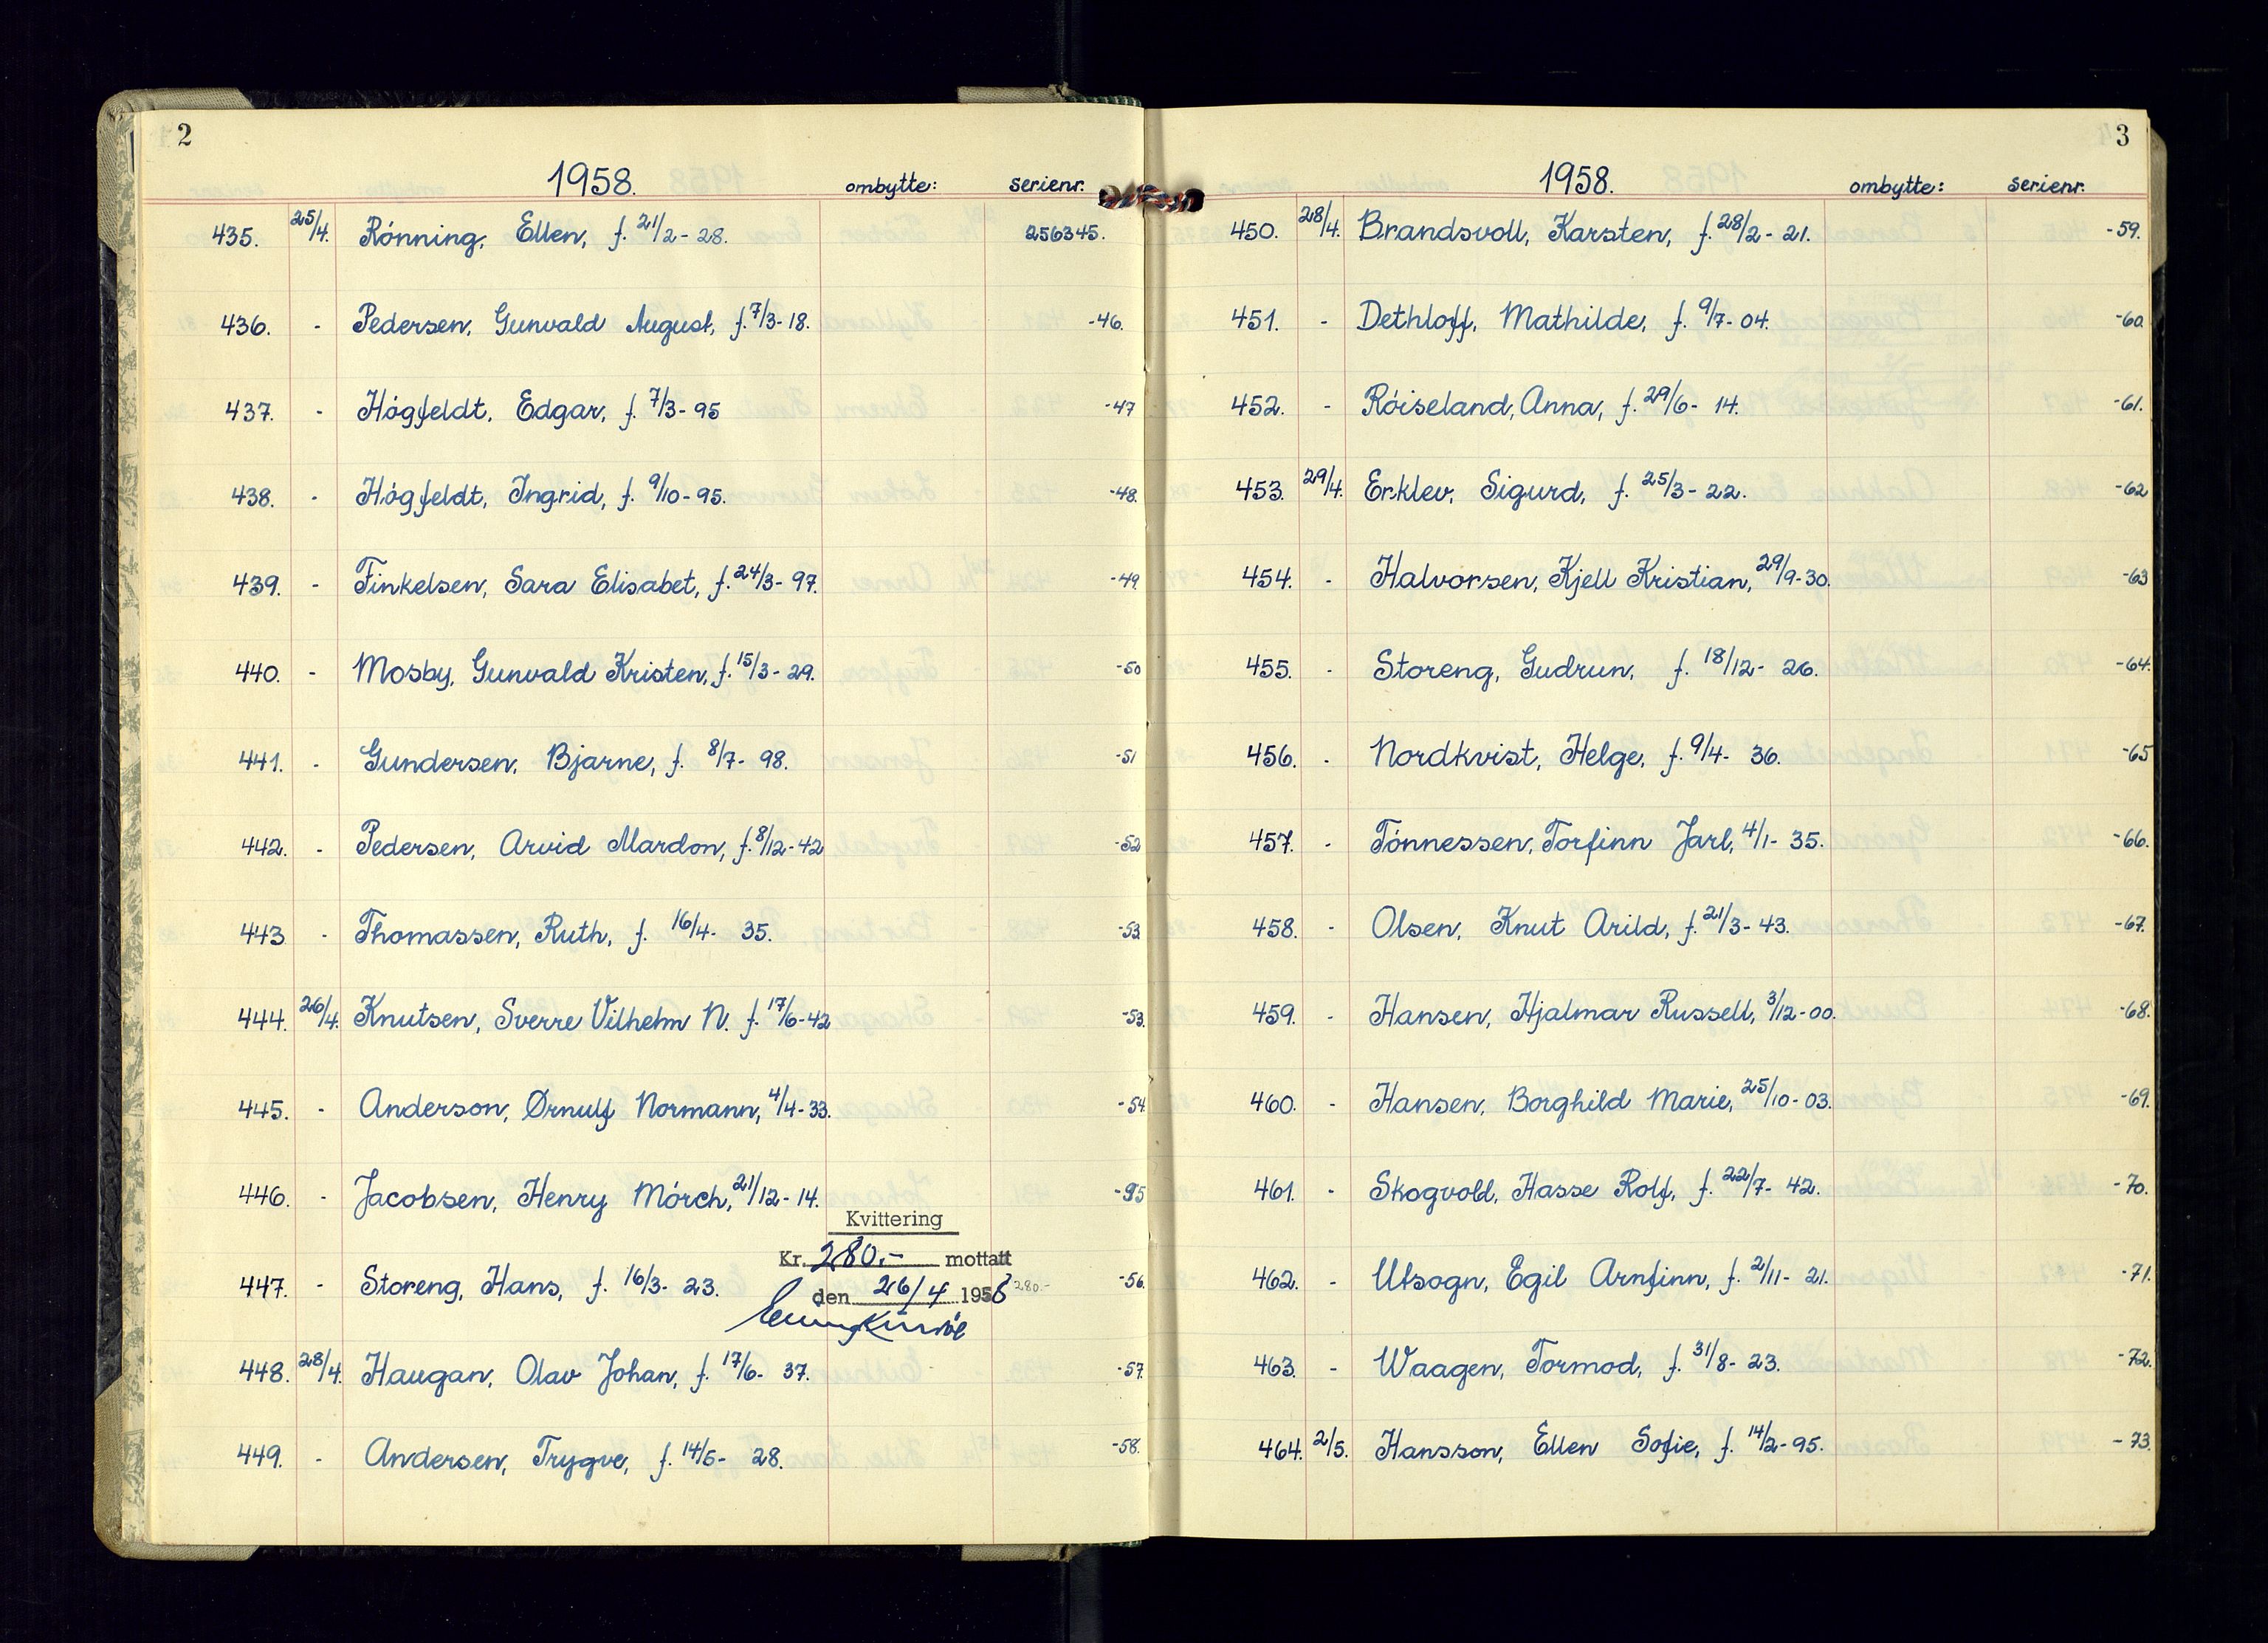 2
1958. ombytte: serienr.
435. 25/4. Rónning, Ellen, f. 21/2-28. 256345.
436. - Pedersen, Gunvald August, f. 7/3-18. -46.
437. - Högfeldt, Edgar, f. 7/3-95 -47
438. - Högfeldt, Ingrid, f. 9/10-95. -48.
439. - Finkelsen, Sara Elisabet, f. 24/3-97. -49.
440. - Mosby, Gunvald Kristen, f. 15/3-29. -50
441. - Gundersen, Bjarne, f. 8/7-98. -51
442. - Pedersen, Arvid Mardon, f. 8/12-42 -52
443 - Thomassen, Ruth, f. 16/4-35. -53.
444. 26/4. Knutsen, Sverre Vilhelm N. f. 17/6-42 -53.
445. - Anderson, Ørnulf Normann, 4/4-33. -54.
446. - Jacobsen, Henry Mórch, 21/12-14. -95
Kvittering
Kr. 280.- mottatt
447. - Storeng, Hans, f. 16/3-23. den 26/4 1958 280.- -56.
448. 28/4. Haugan, Olav Johan, f. 17/6-37. -57.
449. - Andersen, Trygve, f. 14/5-28. -58.
3
1958. ombytte: serienr.
450. 28/4. Brandsvoll, Karsten, f. 28/2-21. -59.
451. - Dethloff, Mathilde, f. 9/7-04. -60.
452. - Róiseland, Anna, f. 29/6-14. -61.
453. 29/4. Erklev, Sigurd, f. 25/3-22. -62
454. - Halvorsen, Kjell Kristian, 29/9-30. -63
455. - Storeng, Gudrun, f. 18/12-26. -64.
456. - Nordkvist, Helge, f. 9/4-36. -65
457. - Tónnessen, Torfinn Jarl, 4/1-35. -66.
458. - Olsen, Knut Arild, f. 21/3-43. -67.
459. - Hansen, Hjalmar Russell, 3/12-00. -68.
460. - Hansen, Borghild Marie, 25/10-03. -69.
461. - Skogvold, Hasse Rolf, f. 22/7-42. -70.
462. - Utsogn, Egil Arnfinn, f. 2/11-21. -71.
463. - Waagen, Tormod, f. 31/8-23. -72.
464. 2/5. Hansson, Ellen Sofie, f. 14/2-95. -73.